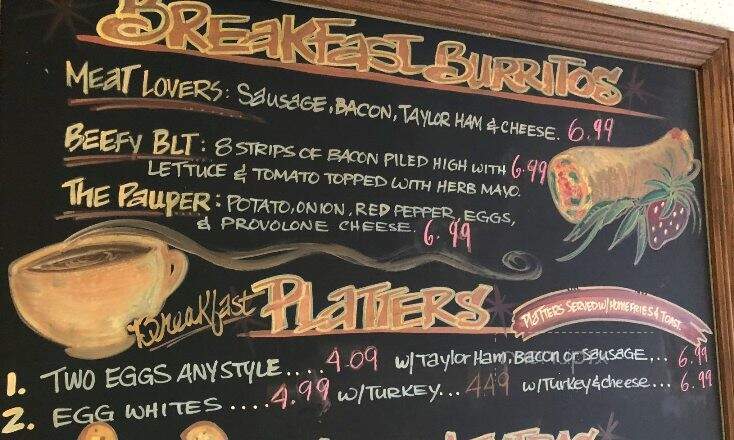 BREAKFAST BURRITOS
MEAT LOVERS: SAUSAGE, BACON, TAYLOR HAM & CHEESE. 6.99
BEEFY BLT: 8 STRIPS OF BACON PILED HIGH WITH 6.99
LETTUCE & TOMATO TOPPED WITH HERB MAYO.
THE PAUPER: POTATO, ONION, RED PEPPER, EGGS,
& PROVOLONE CHEESE. 6.99
Breakfast PLATTERS
PLATTERS SERVED W/ HOMEFRIES & TOAST.
1. TWO EGGS ANY STYLE.... 4.09 w/Taylor Ham, Bacon or Sausage,... 6.99
2. EGG WHITES .... 4.99 w/TURKEY... 4.49 w/Turkey & cheese... 6.99